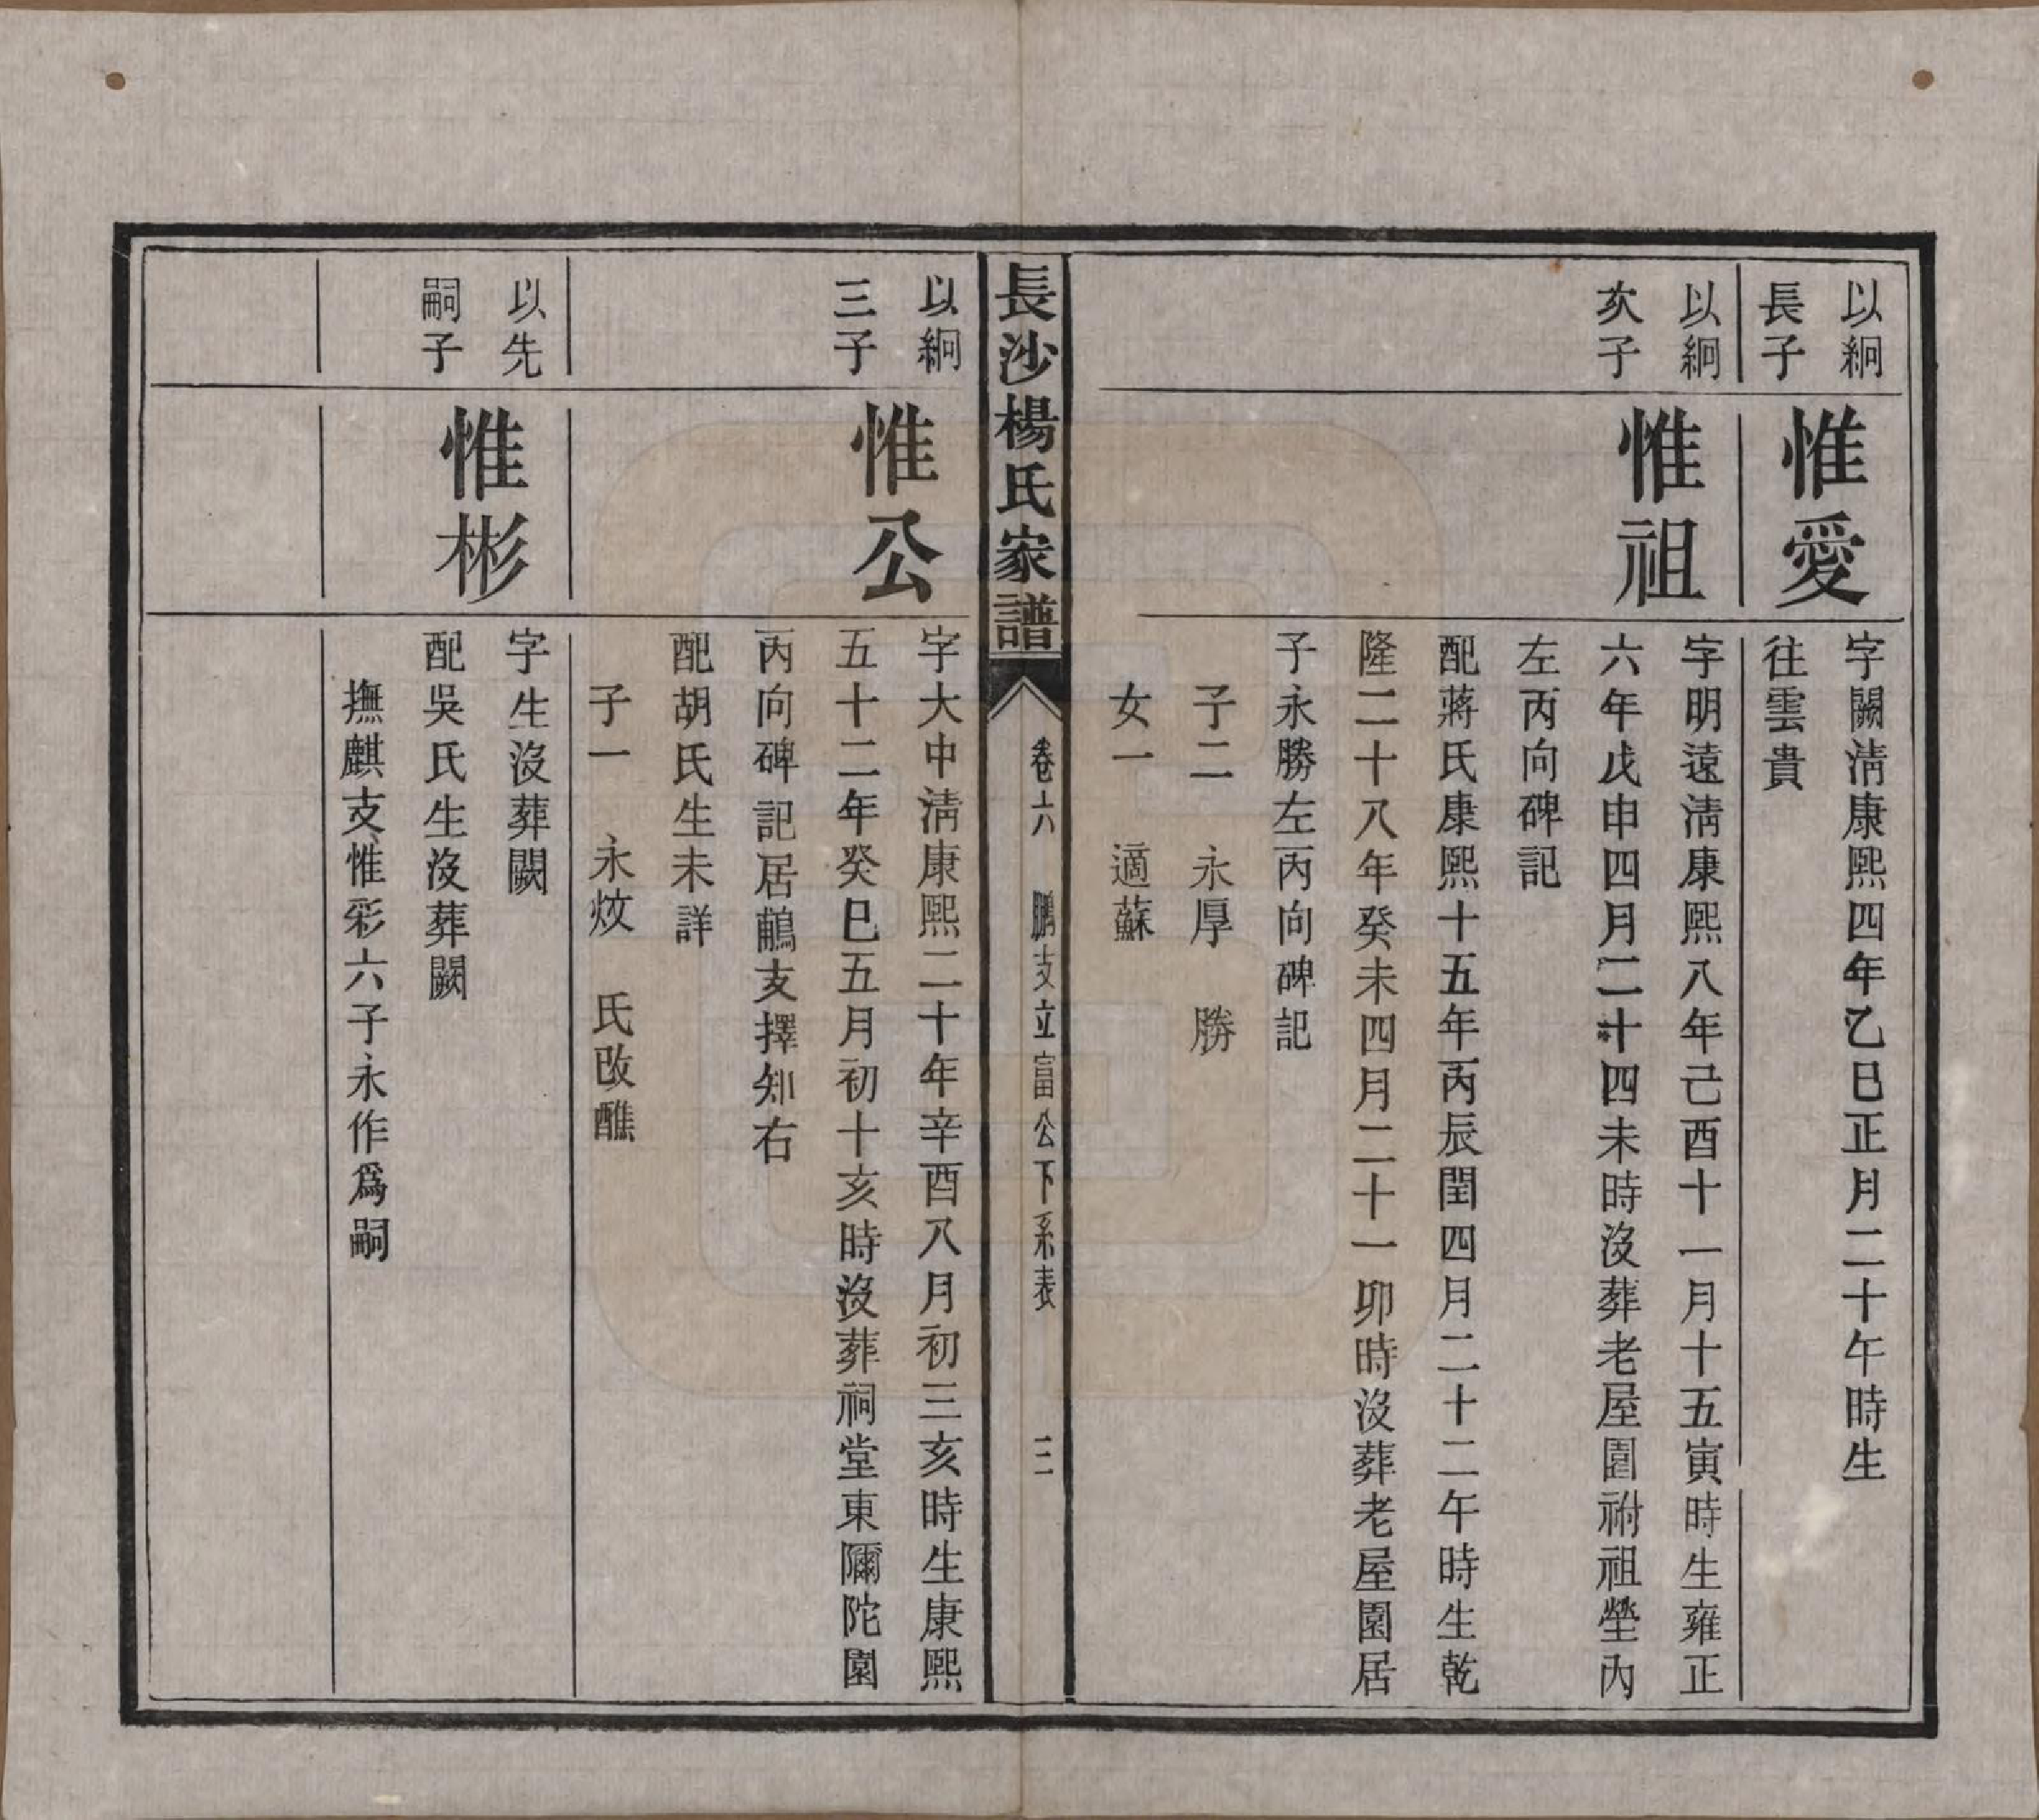 以絅
長子
惟愛
字闕淸康熙四年乙巳正月二十午時生
往雲貴
以絅
次子
惟祖
字明遠淸康熙八年己酉十一月十五寅時生雍正
六年戊申四月二十四未時沒葬老屋園祔祖塋內
左丙向碑記
配蔣氏康熙十五年丙辰閏四月二十二午時生乾
隆二十八年癸未四月二十一卯時沒葬老屋園居
子永勝左丙向碑記
子二 永厚 勝
女一 適蘇
長沙楊氏家譜
卷六 鵬支立富公下系表 二
以絅
三子
惟公
字大中淸康熙二十年辛酉八月初三亥時生康熙
五十二年癸巳五月初十亥時沒葬祠堂東彌陀園
丙向碑記居鷫支擇知右
配胡氏生未詳
子一 永炆 氏改醮
以先
嗣子
惟彬
字生沒葬闕
配吳氏生沒葬闕
撫麒支惟彩六子永作爲嗣